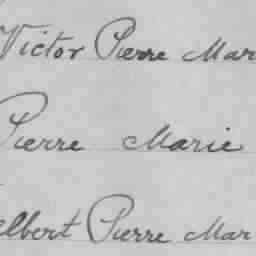 Victor Pierre Mar
Pierre Marie
elbert Pierre Mar